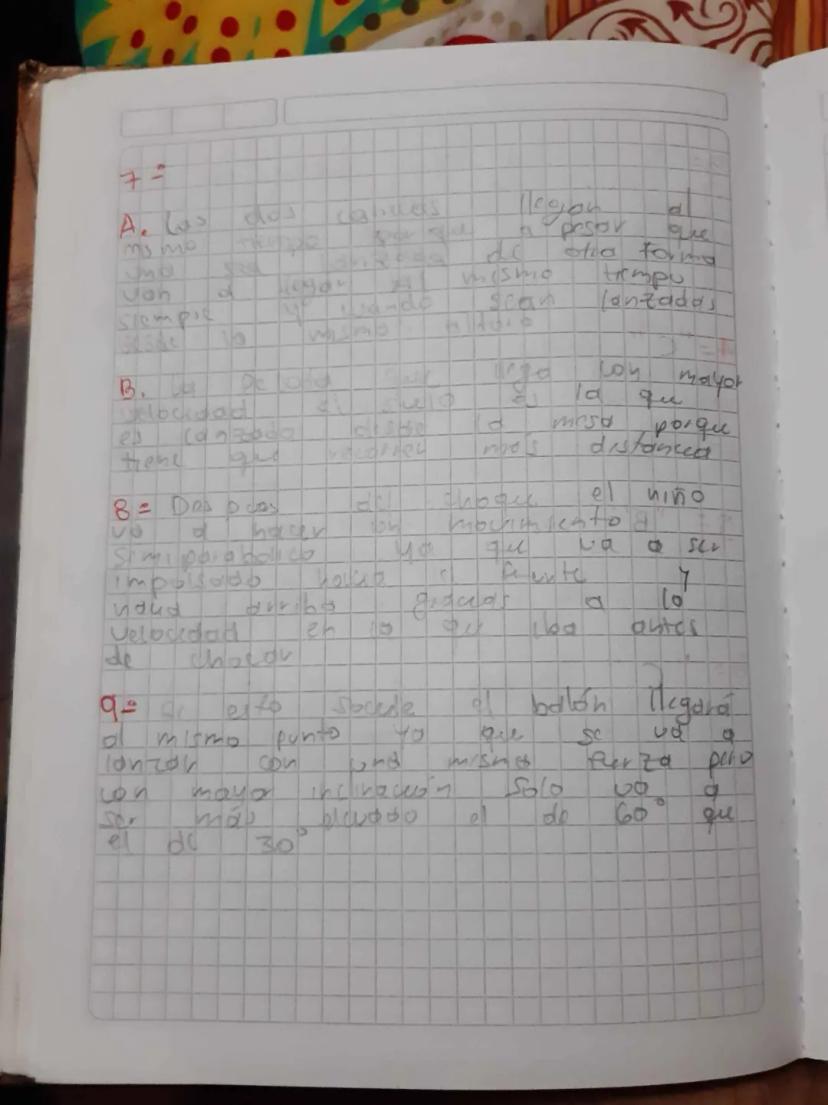 7=
A. Las dos canicas llegan al
mismo tiempo porque a pesar que
una sea lanzada de otra forma
van a llegar al mismo tiempo
siempre y cuando sean lanzadas
desde la misma altura
B. La pelota que llega con mayor
velocidad al suelo es la que
es lanzada desde la mesa porque
tiene que recorrer más distancia
8= el niño
va a hacer un movimiento
semiparabolico ya que va a ser
impulsado hacia el frente y
hacia arriba gracias a la
velocidad en la que iba antes
de chocar
9= Si esto sucede el balón llegará
al mismo punto ya que se va a
lanzar con una misma fuerza pero
con mayor inclinación solo va a
ser más elevado el de 60° que
el de 30°